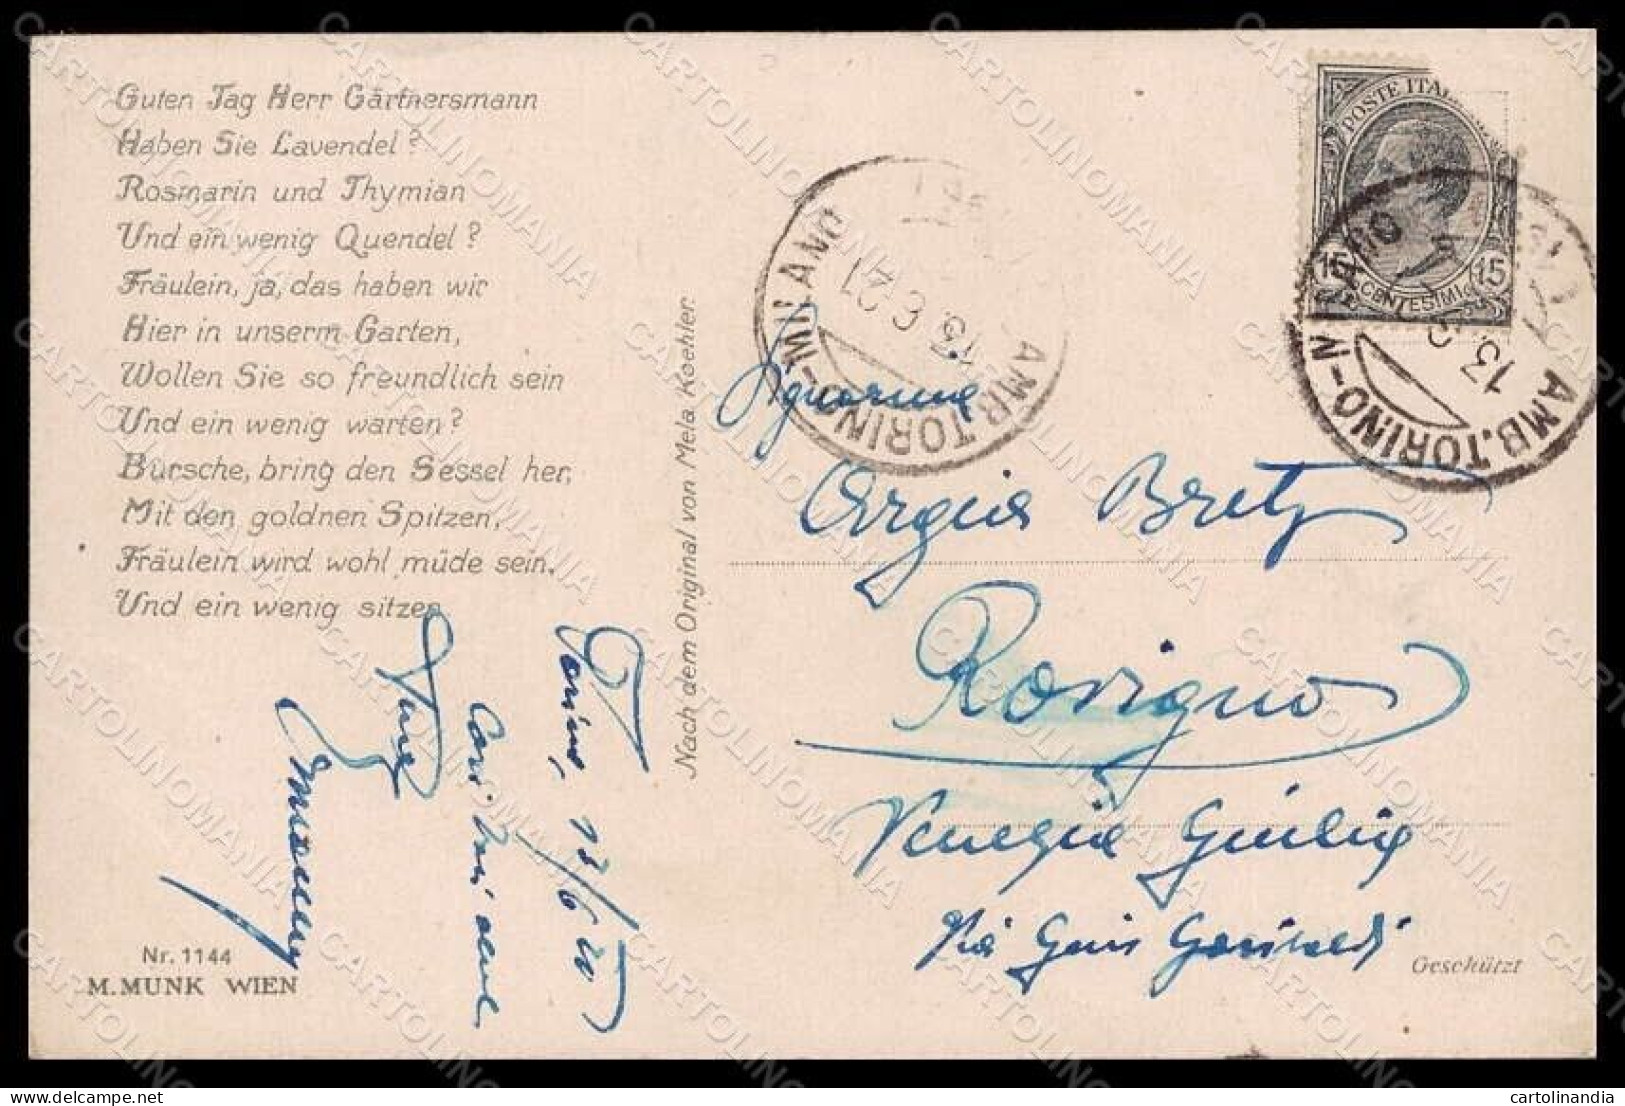 Guten Tag Herr Gärtnersmann
Haben Sie Lavendel?
Rosmarin und Thymian
Und ein wenig Quendel?
Fräulein, ja, das haben wir
Hier in unserm Garten,
Wollen Sie so freundlich sein
Und ein wenig warten?
Bursche, bring den Sessel her,
Mit den goldnen Spitzen,
Fräulein wird wohl müde sein,
Und ein wenig sitzen
Torino, 13/6 20
Nr. 1144
M. MUNK WIEN
Nach dem Original von Mela Koehler.
AMB. TORINO-MILANO
13.6.21
POSTE ITAL
15 CENTESIMI 15
AMB. TORINO-MILANO
13.
Signorina
Argia Bretz
Rovigno
Venezia Giulia
Via Garibaldi
Geschützt
CARTOLINOMANIA
cartolinandia